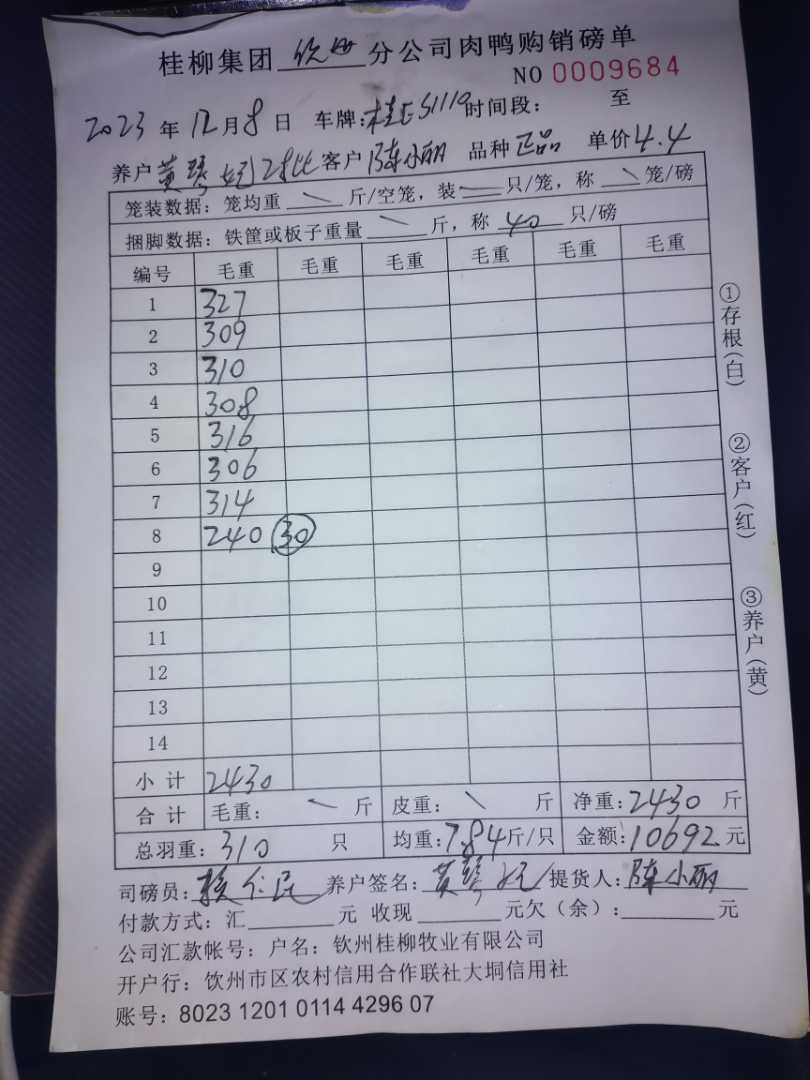 桂柳集团 钦州 分公司肉鸭购销磅单
NO 0009684
2023 年 12 月 8 日 车牌:桂E S1110 时间段: 至
养户 黄琴 2批 客户 陈小丽 品种 正品 单价 4.4
笼装数据: 笼均重 \ 斤/空笼, 装 — 只/笼, 称 \ 笼/磅
捆脚数据: 铁筐或板子重量 \ 斤, 称 40 只/磅
编号 毛重 毛重 毛重 毛重 毛重 毛重
1 327
2 309
3 310
4 308
5 316
6 306
7 314
8 240 30
9
10
11
12
13
14
小计 2430
合计 毛重: \ 斤 皮重: \ 斤 净重: 2430 斤
总羽重: 310 只 均重: 7.84 斤/只 金额: 10692 元
司磅员: 仁民 养户签名: 黄琴 提货人: 陈小丽
付款方式: 汇 元 收现 元欠(余): 元
公司汇款帐号: 户名: 钦州桂柳牧业有限公司
开户行: 饮州市区农村信用合作联社大垌信用社
账号: 8023 1201 0114 4296 07
①存根(白)
②客户(红)
③养户(黄)